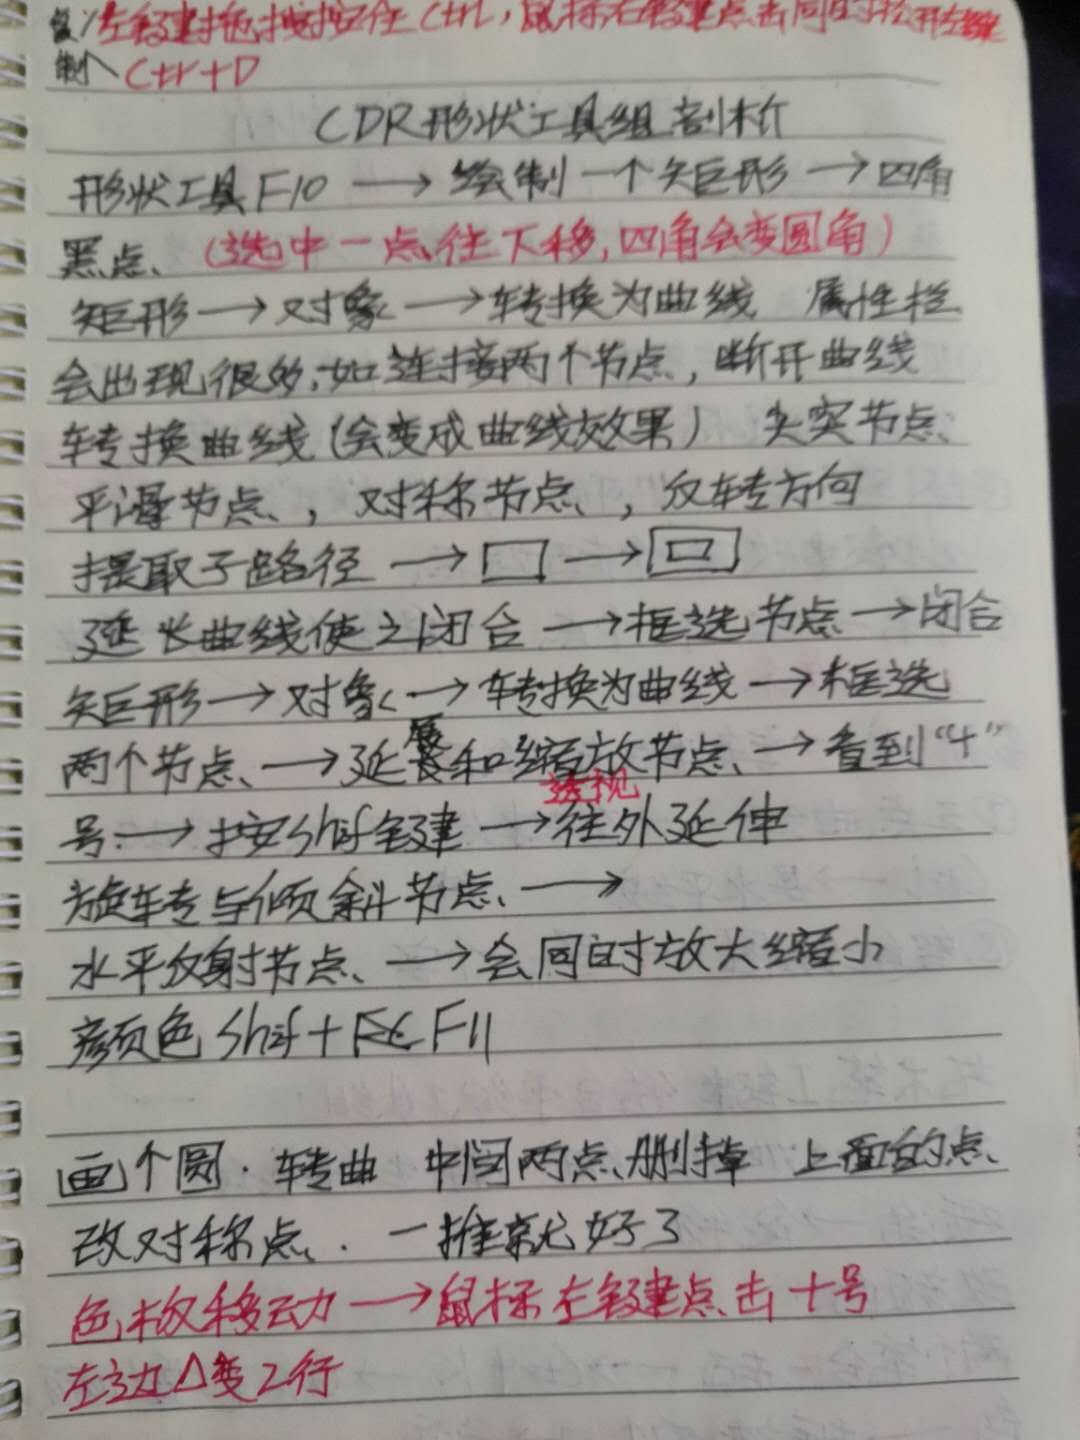 复 左键拖拽按住Ctrl，鼠标右键点击同时松开左键
制 Ctr+D
CDR形状工具组剖析
形状工具F10 → 绘制一个矩形 → 四角
黑点、（选中一点往下移，四角会变圆角）
矩形 → 对象 → 转换为曲线 属性栏
会出现很多，如连接两个节点，断开曲线
转换曲线（会变成曲线效果） 尖突节点、
平滑节点、，对称节点、，反转方向
提取子路径 → □ → 回
延长曲线使之闭合 → 框选节点 → 闭合
矩形 → 对象 → 转换为曲线 → 框选
两个节点、 → 延展和缩放节点、 → 看到“十”
透视
号 → 按Shif键 → 往外延伸
旋转与倾斜节点、 →
水平反射节点、 → 会同时放大缩小
颜色 Shif + F11
画个圆. 转曲 中间两点、删掉 上面的点、
改对称点、. 一推就好了
色板移动 → 鼠标左键点击十号
左边△变2行